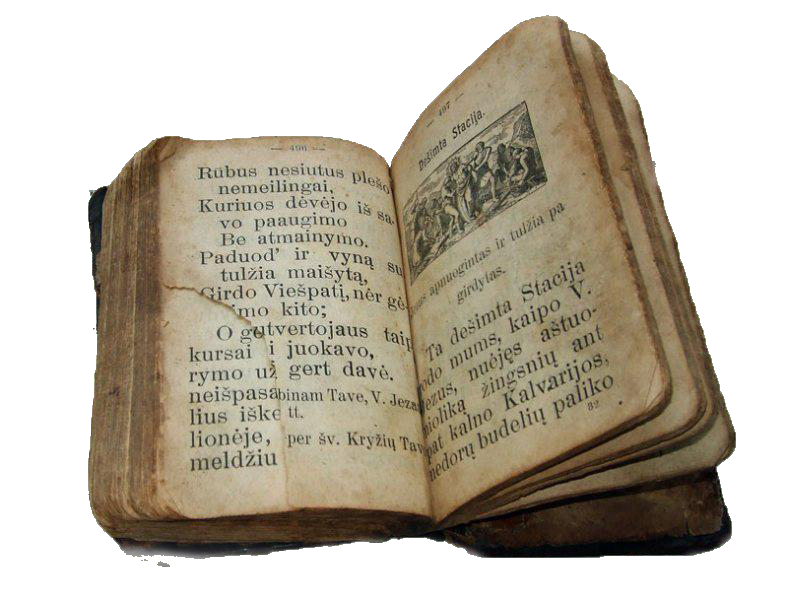 — 496 —
Rūbus nesiutus plešo
nemeilingai,
Kuriuos dėvėjo iš sa-
vo paaugimo
Be atmainymo.
Paduod' ir vyną su
tulžia maišytą,
Girdo Viešpatį, nėr gė-
imo kito;
O gutvertojaus taip
kursai i juokavo,
rymo už gert davė.
neišpasabinam Tave, V. Jeza
lius iške tt.
lionėje, per šv. Kryžių Tav
meldžiu
— 497 —
Dešimta Stacija.
apnuogintas ir tulžia pa-
girdytas.
Ta dešimta Stacija
rodo mums, kaipo V.
Jezus, nuėjęs aštuo-
nioliką žingsnių ant
pat kalno Kalvarijos,
nedorų budelių paliko
32